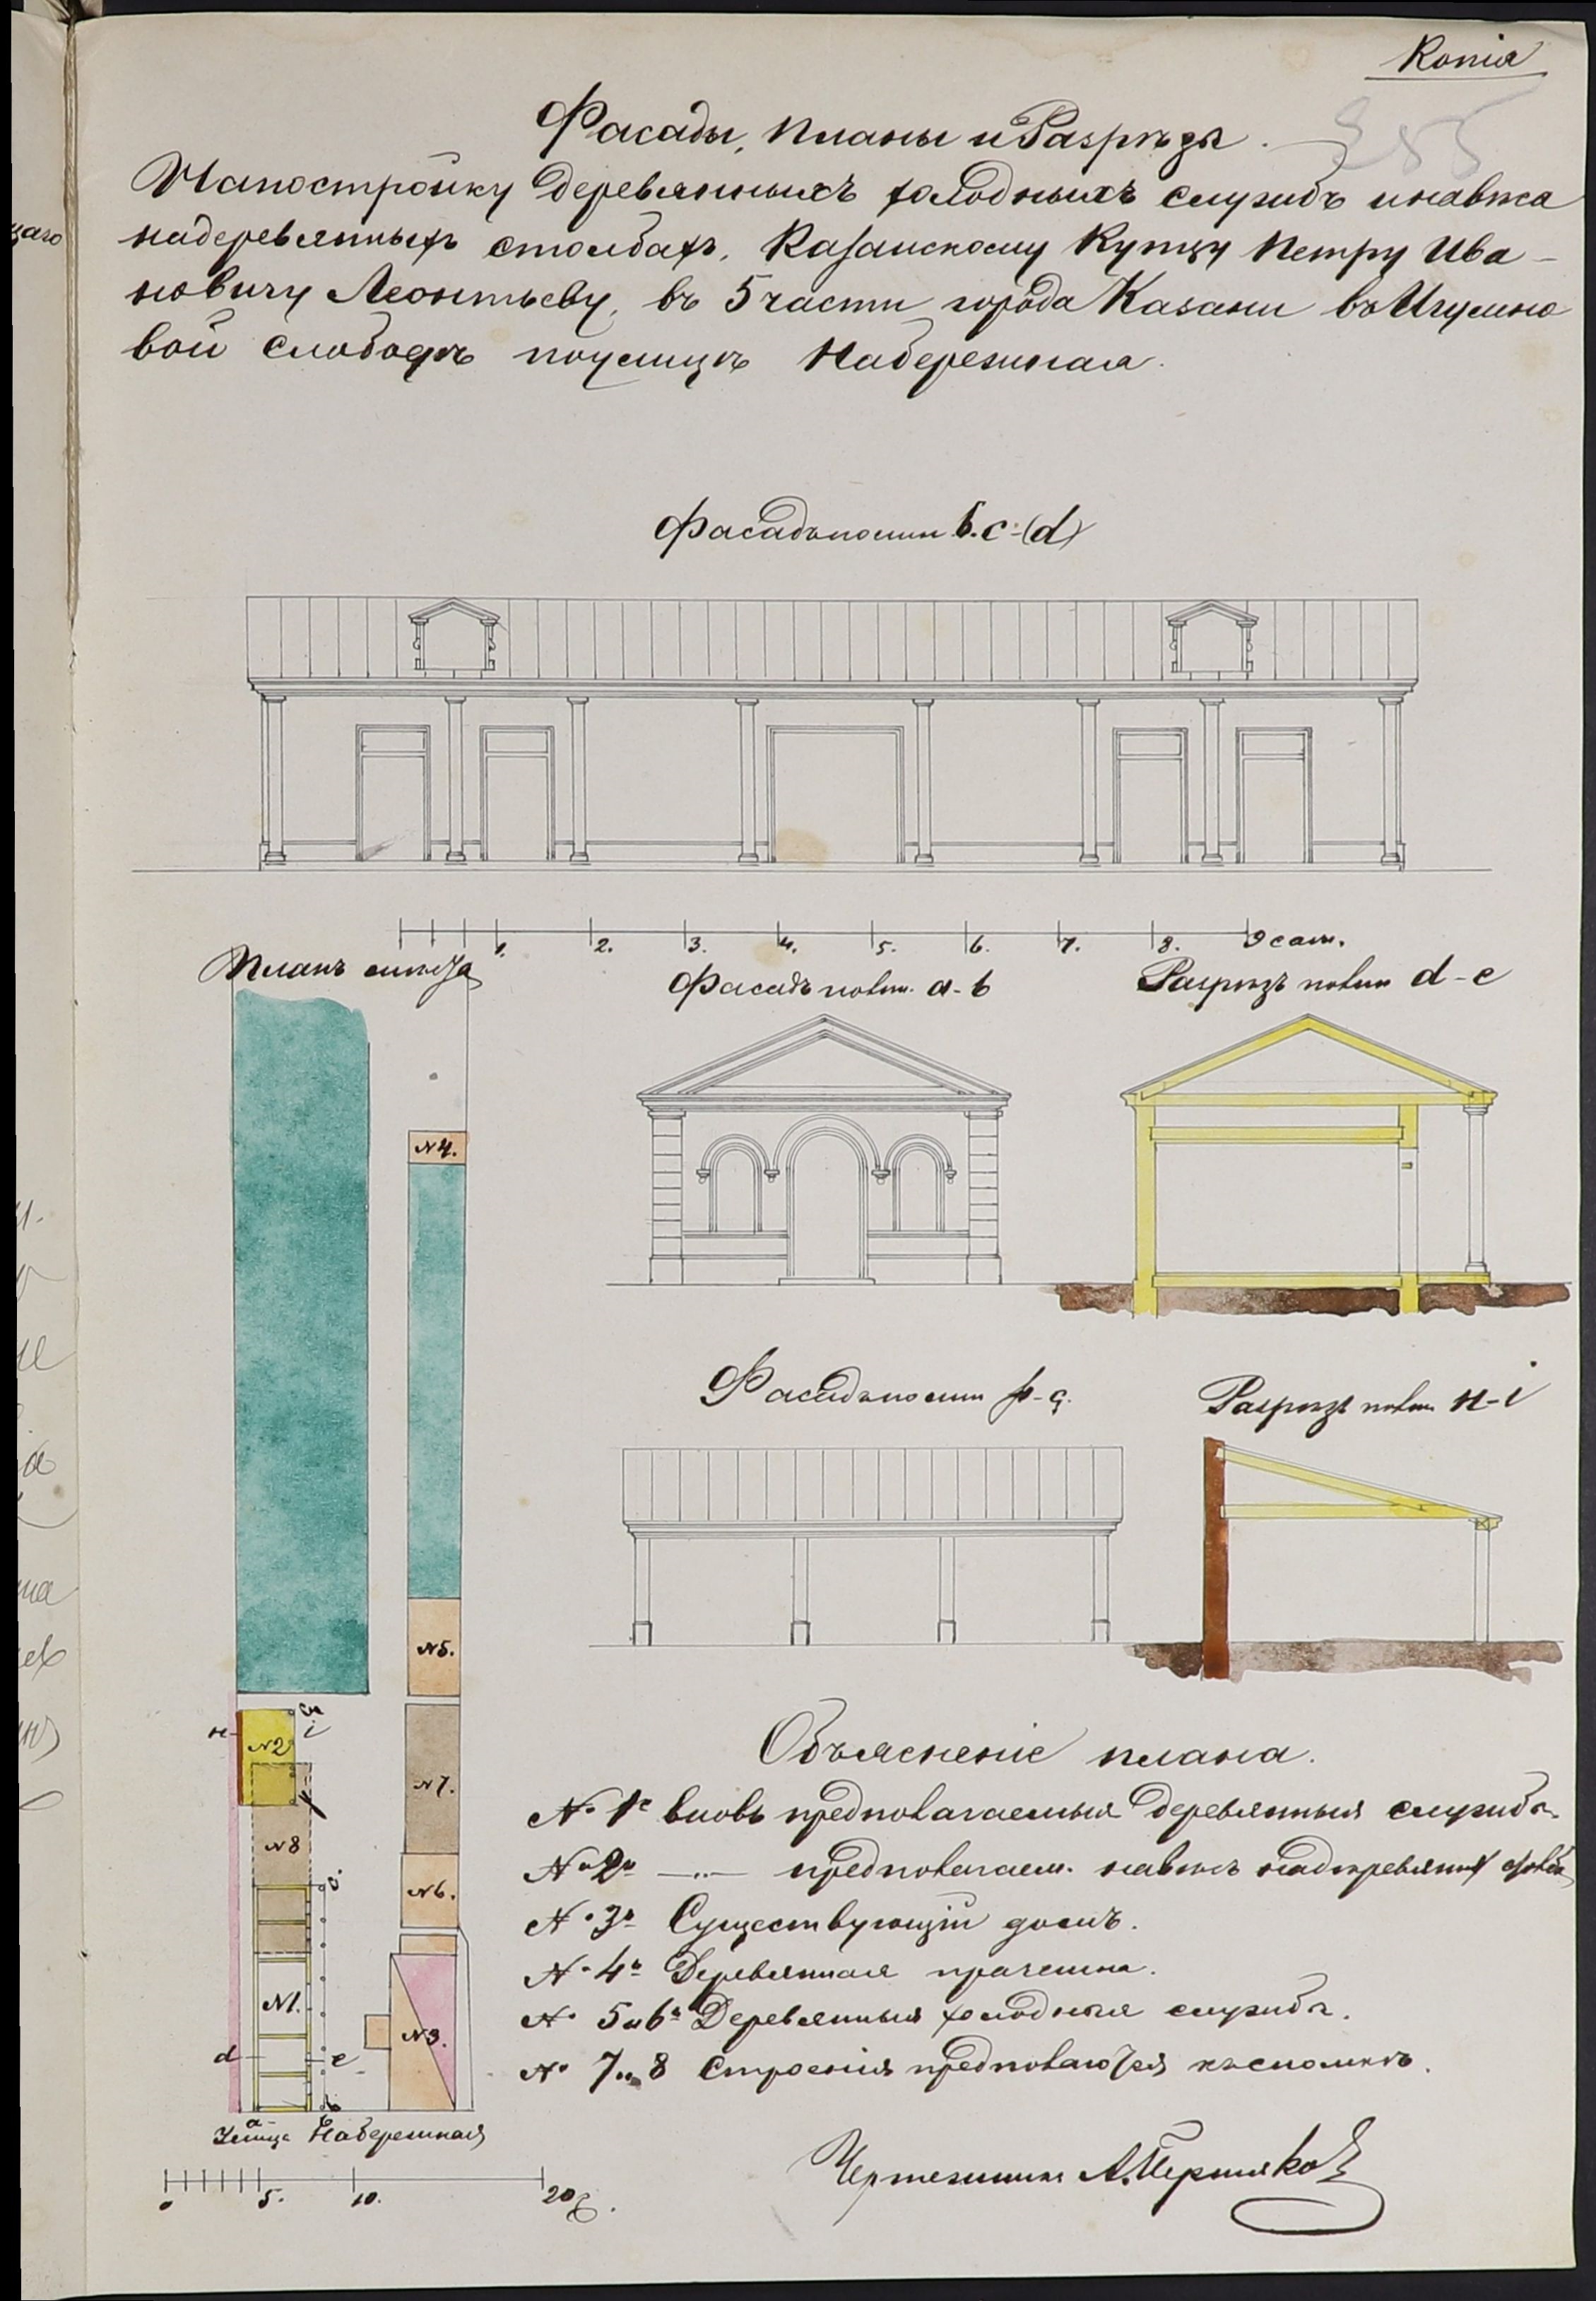 Копія
355
Фасады, планы и Разрѣзы.
На постройку деревянныхъ холодныхъ службъ и навѣса
на деревянныхъ столбахъ, Казанскому Купцу Петру Ива-
новичу Леонтьеву, въ 5 части города Казани въ Игумно
вой Слободѣ по улицѣ Набережная.
Фасадъ по лин b.c-(d)
1. 2. 3. 4. 5. 6. 7. 8. 9 саж.
Планъ мѣста
Фасадъ по лин. a-b
Разрѣзъ по лин d-e
N4.
Фасадъ по лин p-q.
Разрѣзъ по лин н-i
N5.
н
i
N2
N7.
N8
N6.
c
N1.
N3.
d
e
a
b
Улица Набережная
0 5. 10. 20 с.
Объясненіе плана.
N. 1е вновь предполагаемыя деревянныя службы
N 2й —„— предполагаем. навѣсъ на деревянных столб
N. 3й Существующій домъ.
N. 4й Деревянная прачешна.
N. 5 и 6й Деревянныя холодныя службы.
N. 7 и 8 Строенія предполаются къ сломкѣ.
Чертежникъ А. Пермяковъ